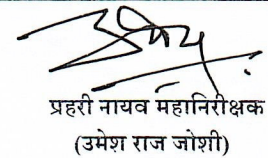 प्रहरी नायव महानिरीक्षक
(उमेश राज जोशी)